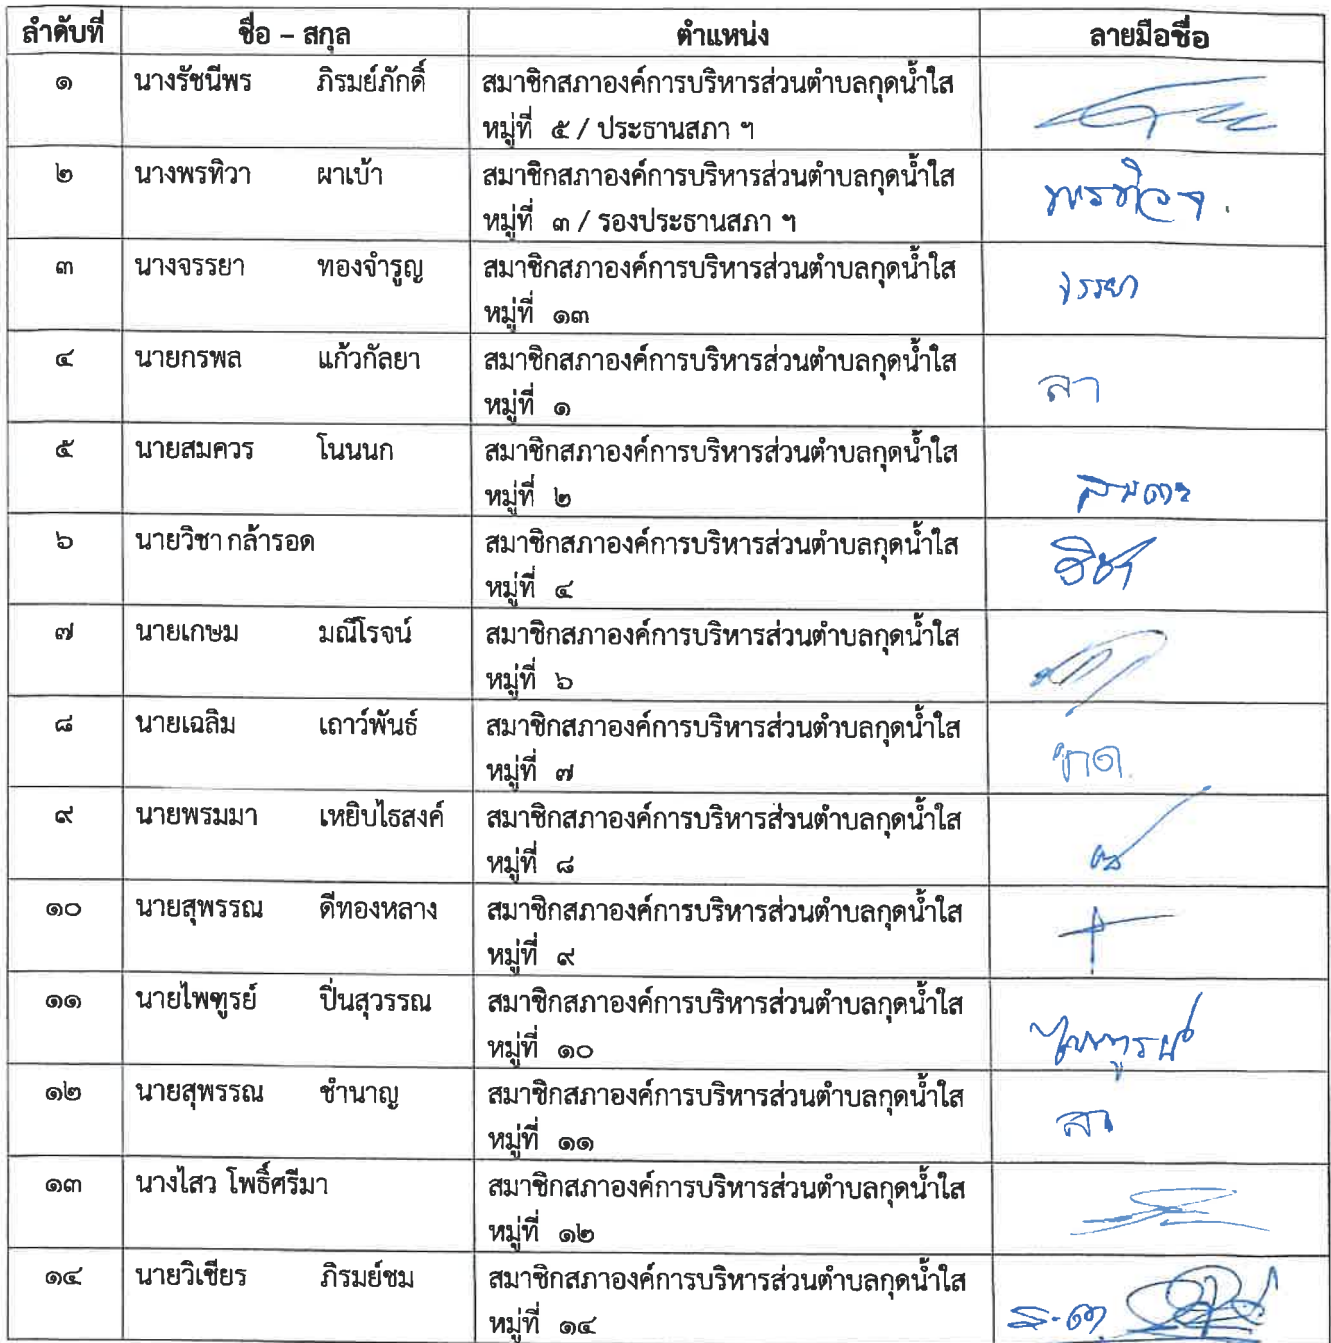 ลำดับที่ ชื่อ – สกุล ตำแหน่ง ลายมือชื่อ
๑ นางรัชนีพร ภิรมย์ภักดิ์ สมาชิกสภาองค์การบริหารส่วนตำบลกุดน้ำใส
หมู่ที่ ๕ / ประธานสภา ฯ
๒ นางพรทิวา ผาเบ้า สมาชิกสภาองค์การบริหารส่วนตำบลกุดน้ำใส พรทิวา
หมู่ที่ ๓ / รองประธานสภา ฯ
๓ นางจรรยา ทองจำรูญ สมาชิกสภาองค์การบริหารส่วนตำบลกุดน้ำใส จรรยา
หมู่ที่ ๑๓
๔ นายกรพล แก้วกัลยา สมาชิกสภาองค์การบริหารส่วนตำบลกุดน้ำใส ลา
หมู่ที่ ๑
๕ นายสมควร โนนนก สมาชิกสภาองค์การบริหารส่วนตำบลกุดน้ำใส สมควร
หมู่ที่ ๒
๖ นายวิชา กล้ารอด สมาชิกสภาองค์การบริหารส่วนตำบลกุดน้ำใส วิชา
หมู่ที่ ๔
๗ นายเกษม มณีโรจน์ สมาชิกสภาองค์การบริหารส่วนตำบลกุดน้ำใส
หมู่ที่ ๖
๘ นายเฉลิม เถาว์พันธ์ สมาชิกสภาองค์การบริหารส่วนตำบลกุดน้ำใส ขาด
หมู่ที่ ๗
๙ นายพรมมา เหยิบไธสงค์ สมาชิกสภาองค์การบริหารส่วนตำบลกุดน้ำใส
หมู่ที่ ๘
๑๐ นายสุพรรณ ดีทองหลาง สมาชิกสภาองค์การบริหารส่วนตำบลกุดน้ำใส
หมู่ที่ ๙
๑๑ นายไพฑูรย์ ปิ่นสุวรรณ สมาชิกสภาองค์การบริหารส่วนตำบลกุดน้ำใส ไพฑูรย์
หมู่ที่ ๑๐
๑๒ นายสุพรรณ ชำนาญ สมาชิกสภาองค์การบริหารส่วนตำบลกุดน้ำใส ลา
หมู่ที่ ๑๑
๑๓ นางไสว โพธิ์ศรีมา สมาชิกสภาองค์การบริหารส่วนตำบลกุดน้ำใส
หมู่ที่ ๑๒
๑๔ นายวิเชียร ภิรมย์ชม สมาชิกสภาองค์การบริหารส่วนตำบลกุดน้ำใส
หมู่ที่ ๑๔